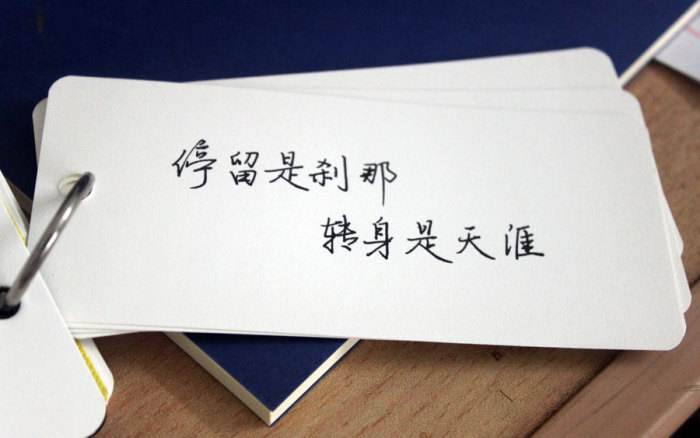 停留是刹那
转身是天涯